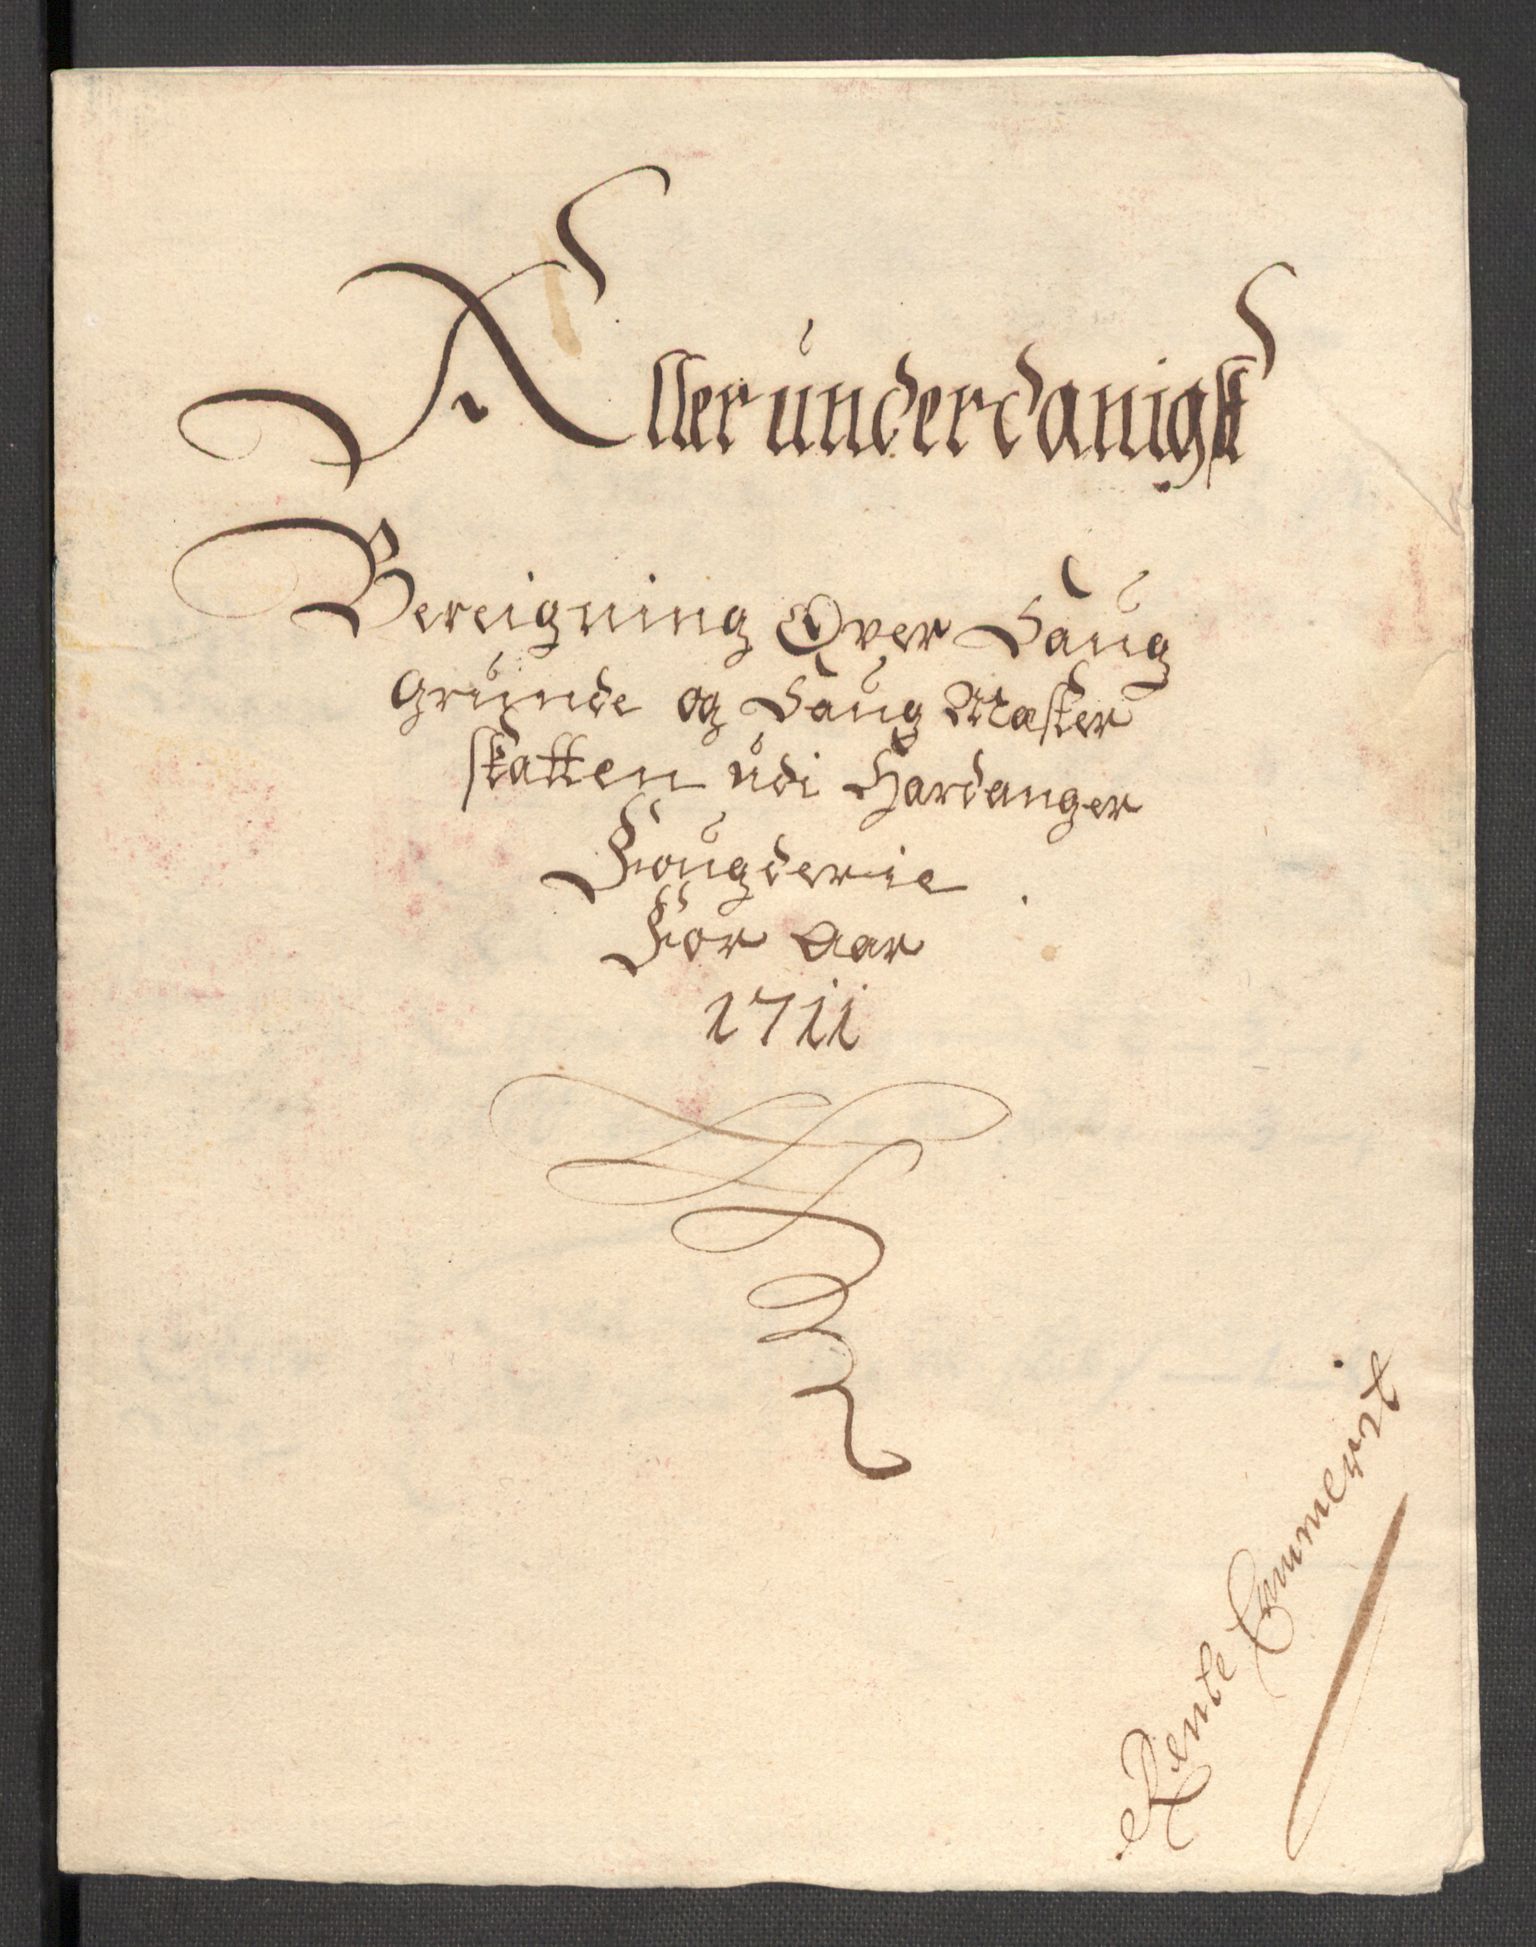 Allerunderdanigst
Bereigning Over Saug
grunde og Saug Mæster
skatten udi Hardanger
Fougderie
For Aar
1711
Rente Cammerit